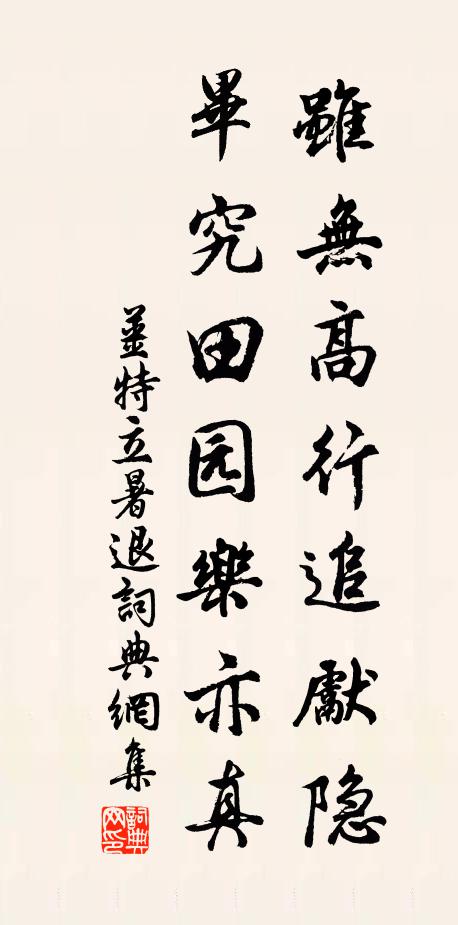 雖無高行追獻隐
畢究田园樂亦真
薑特立暑退詞典網集
詞典网印